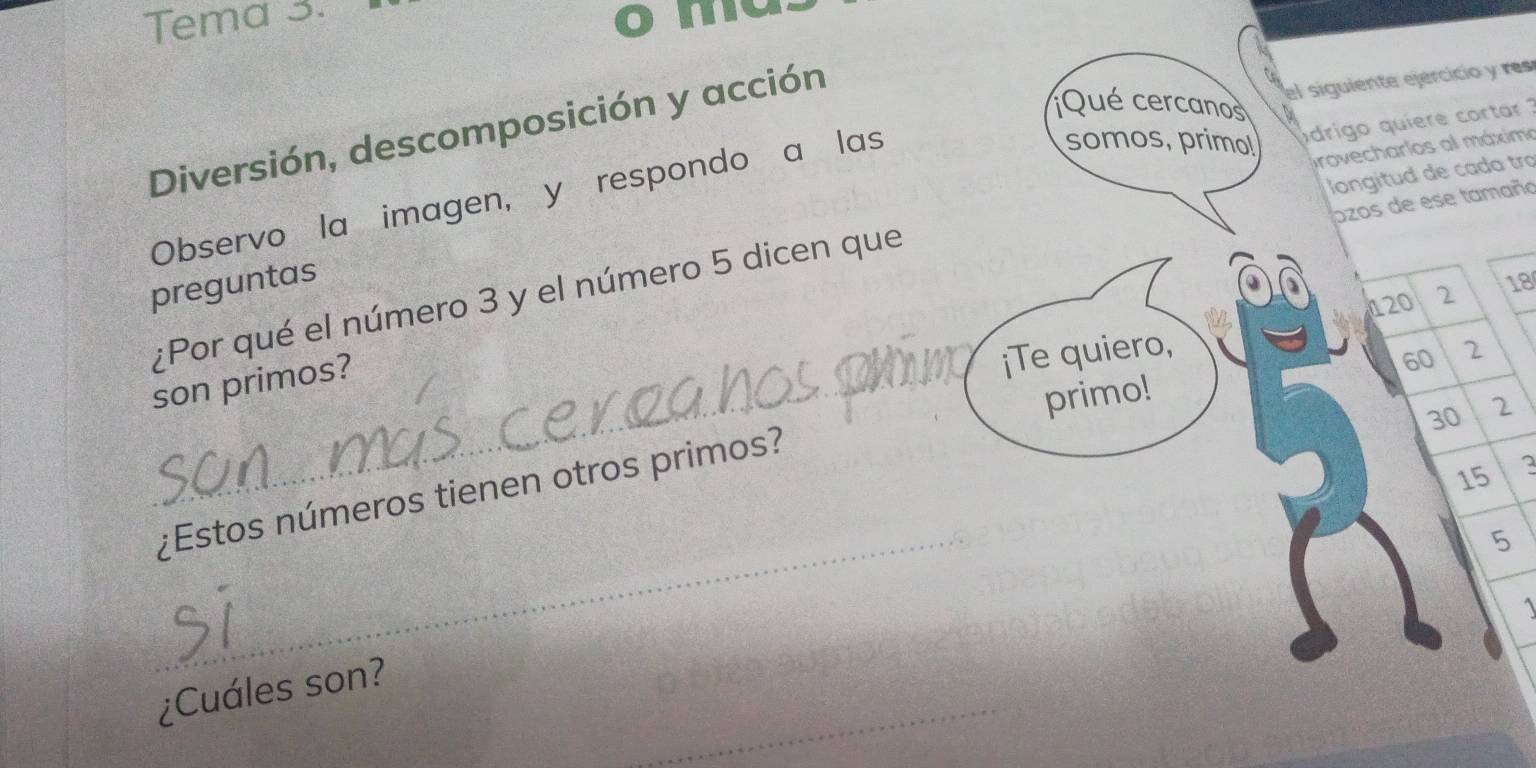 Tema 3.
o más
Diversión, descomposición y acción
Observo la imagen, y respondo a las
preguntas
¿Por qué el número 3 y el número 5 dicen que
son primos?
son más cercanos primo
¿Estos números tienen otros primos?
sí
¿Cuáles son?
¡Qué cercanos
somos, primo!
¡Te quiero,
primo!
5
el siguiente ejercicio y res
drigo quiere cortar
rovecharlos al máximo
longitud de cada tro
ozos de ese tamaño
120 2
60 2
30 2
15 3
5
1
18